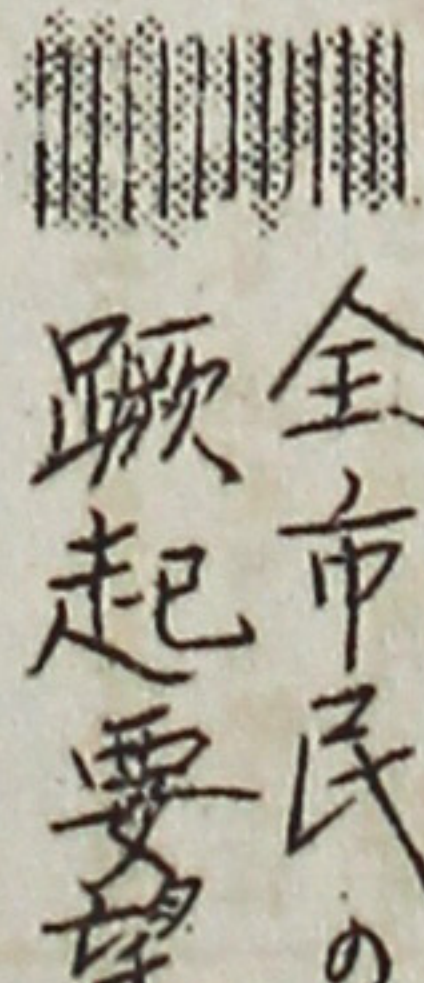 全市民の
蹶起要望